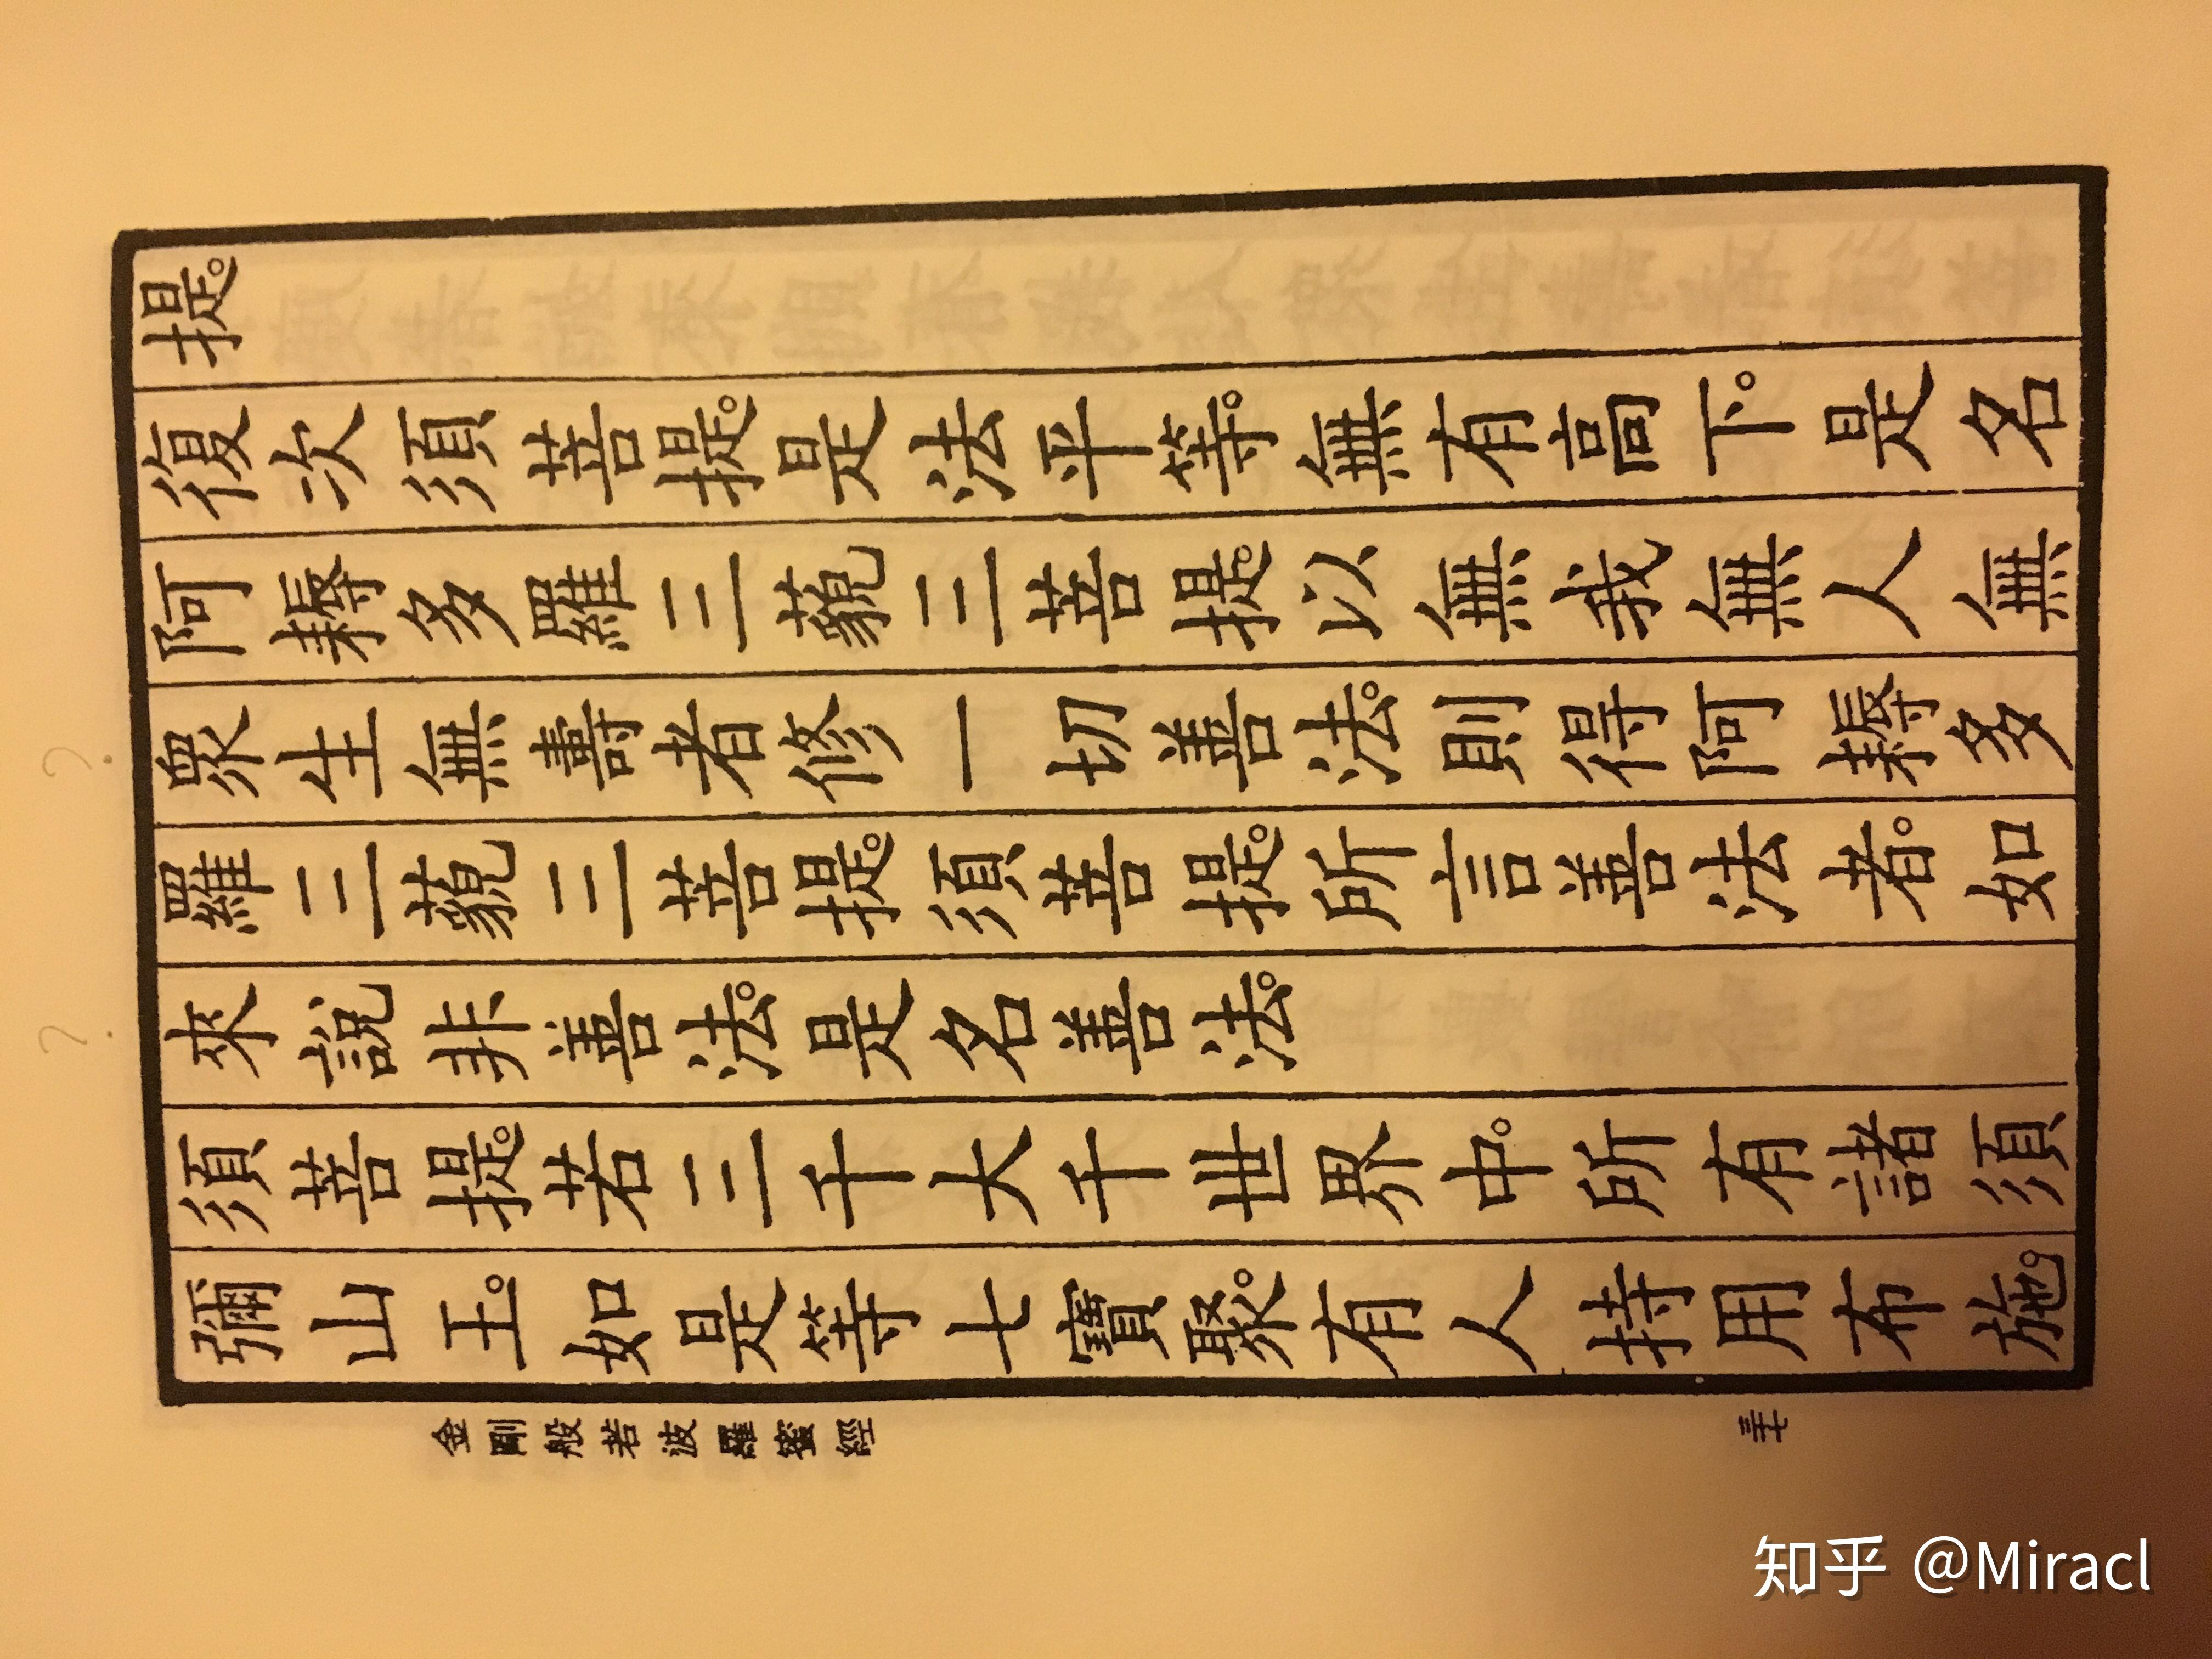 提。
復次須菩提。是法平等。無有高下。是名
阿耨多羅三藐三菩提。以無我無人無
眾生無壽者修一切善法。則得阿耨多
羅三藐三菩提。須菩提。所言善法者。如
來說非善法。是名善法。
須菩提。若三千大千世界中。所有諸須
彌山王。如是等七寶聚。有人持用布施。
金剛般若波羅蜜經
知乎 @Miracl